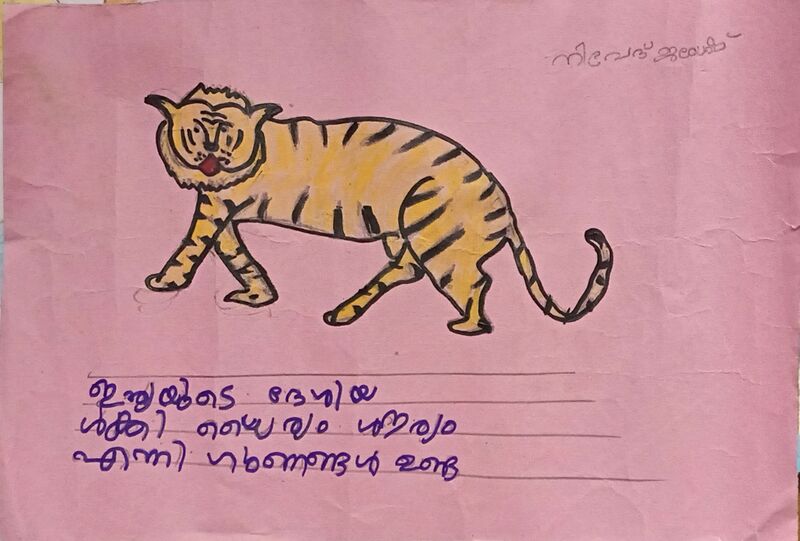 നിവേദ് ജയേഷ്
ഇന്ത്യയുടെ ദേശിയ
ശക്തി ധൈര്യം ശൗര്യം
എന്നി ഗുണങ്ങൾ ഉണ്ട